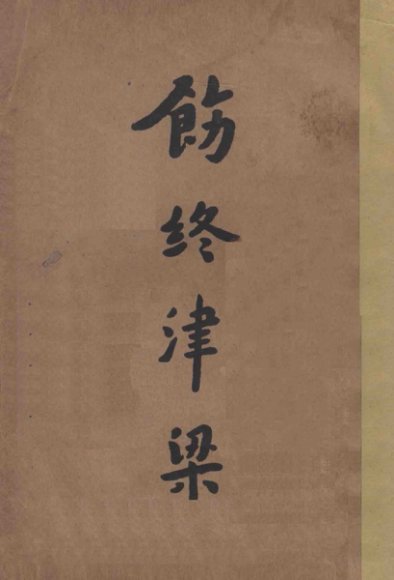 飭終津梁